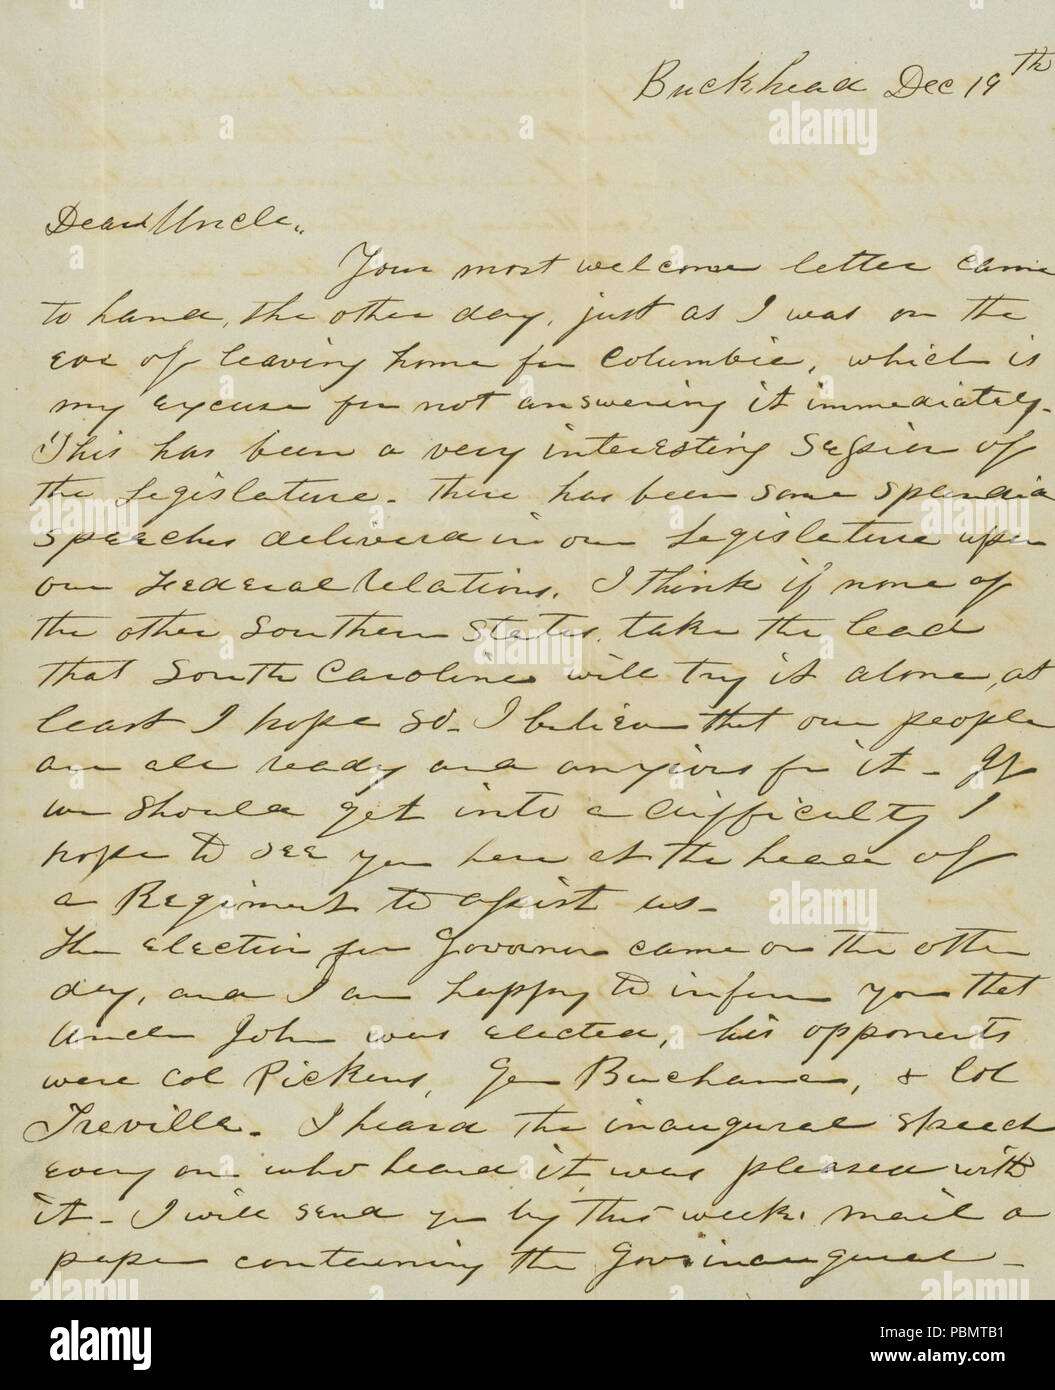 Buckhead Dec 19th
Dear Uncle,,
Your most welcome letter came
to hand, the other day, just as I was on the
eve of leaving home for Columbia, which is
my excuse for not answering it immediately.
This has been a very interesting Session of
the Legislature. There has been some splendid
speeches delivered in our Legislature upon
our Federal Relations. I think if none of
the other Southern States take the lead
that South Carolina will try it alone, at
least I hope so. I believe that our people
are all ready and anxious for it. If
we should get into a difficulty I
hope to see you here at the head of
a Regiment to assist us.
The election for Governor came on the other
day, and I am happy to inform you that
Uncle John was elected, his opponents
were Col Pickens, Gen Buchanan, & Col
Treville. I heard the inaugural speech
every one who heard it was pleased with
it. I will send you by this week's mail a
paper containing the Gov inaugural.
alamy
alamy
alamy
alamy
alamy
alamy
alamy
alamy
Image ID: PBMTB1
www.alamy.com